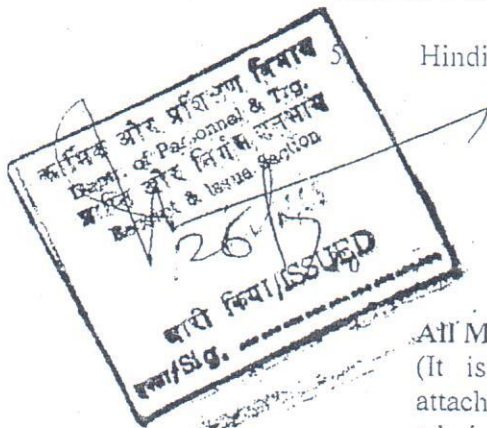 5. Hindi
कार्मिक और प्रशिक्षण विभाग
Deptt. of Personnel & Trg.
प्राप्ति और निर्गम अनुभाग
Receipt & Issue Section
26
जारी किया/ISSUED
/Sig.
All M
(It is
attach